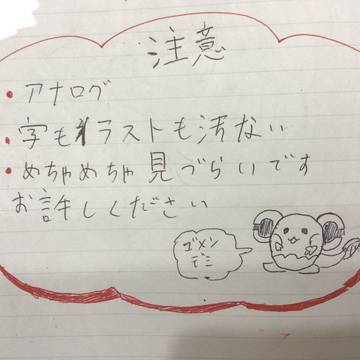 注意
・アナログ
・字もイラストも汚ない
・めちゃめちゃ見づらいです
お許しください
ゴメン
デミ